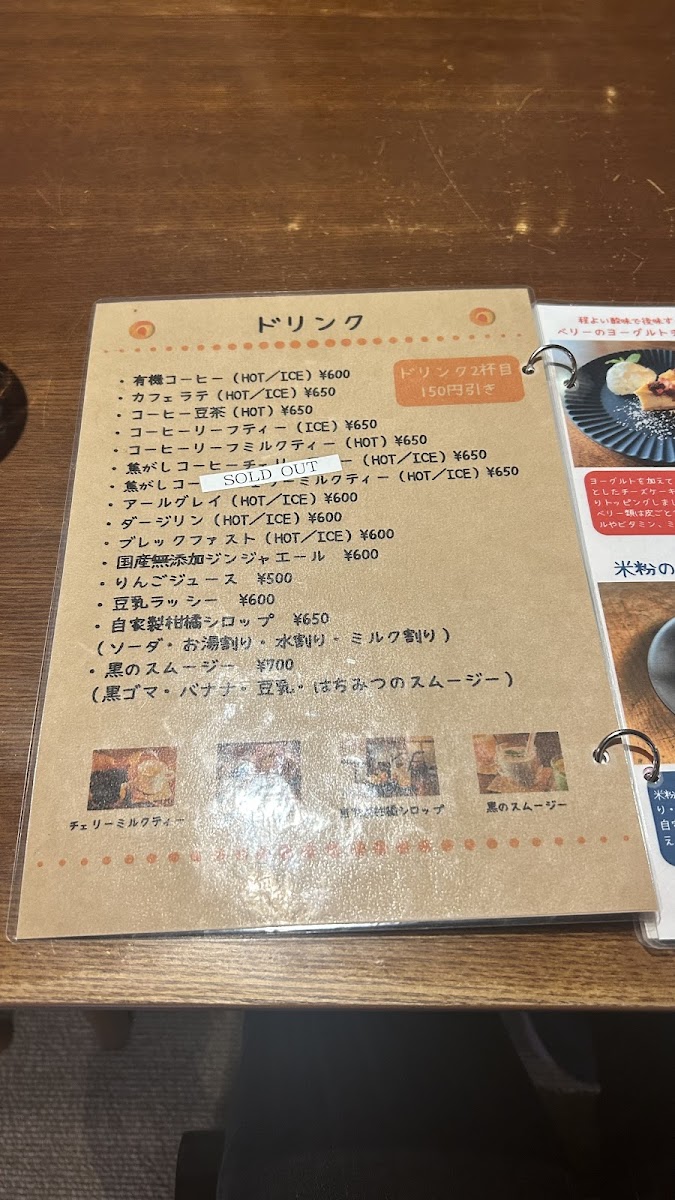 ドリンク
ドリンク2杯目
150円引き
・有機コーヒー（HOT／ICE）¥600
・カフェラテ（HOT／ICE）¥650
・コーヒー豆茶（HOT）¥650
・コーヒーリーフティー（ICE）¥650
・コーヒーリーフミルクティー（HOT）¥650
・焦がしコーヒーチェリーー（HOT／ICE）¥650
SOLD OUT
・焦がしコー ーミルクティー（HOT／ICE）¥650
・アールグレイ（HOT／ICE）¥600
・ダージリン（HOT／ICE）¥600
・ブレックファスト（HOT／ICE）¥600
・国産無添加ジンジャエール ¥600
・りんごジュース ¥500
・豆乳ラッシー ¥600
・自家製柑橘シロップ ¥650
（ソーダ・お湯割り・水割り・ミルク割り）
・黒のスムージー ¥700
（黒ゴマ・バナナ・豆乳・はちみつのスムージー）
チェリーミルクティー
柑橘シロップ
黒のスムージー
程よい酸味で後味す
ベリーのヨーグルト
ヨーグルトを加えて
としたチーズケーキ
りトッピングしま
ベリー類は皮ごと
ルやビタミン、ミ
米粉の
米粉
り・
自家
え